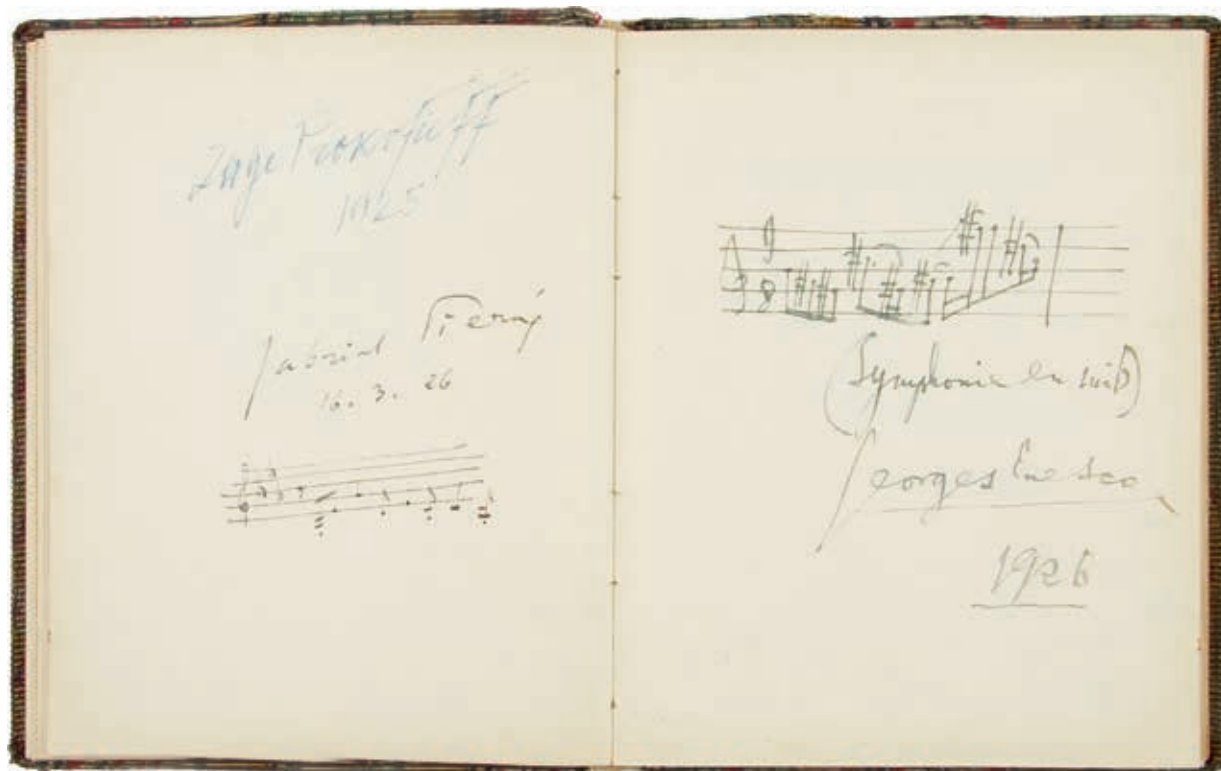 Serge Prokofieff
1925
Gabriel Pierné
16. 3. 26
(Symphonie en mi♭)
Georges Enesco
1926